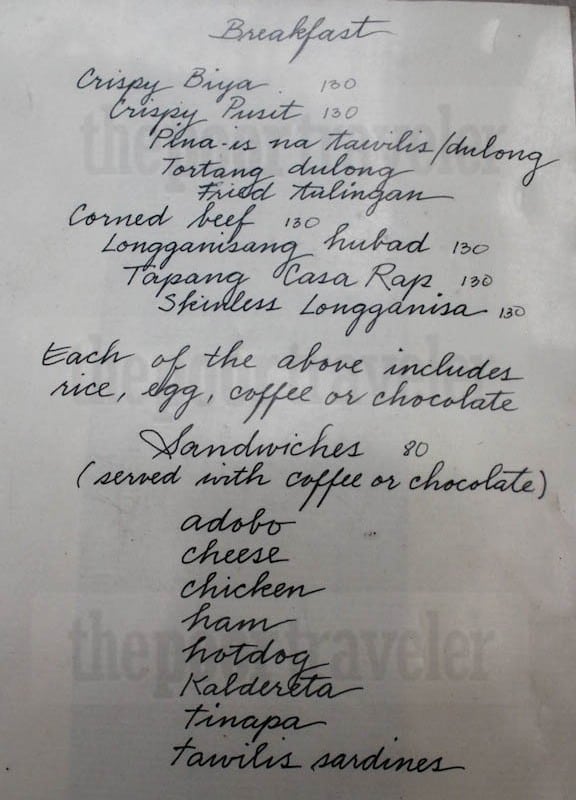 Breakfast
Crispy Biya 130
Crispy Pusit 130
Pina-is na tawilis/dulong
Tortang dulong
Fried tulingan
Corned beef 130
Longganisang hubad 130
Tapang Casa Rap 130
Skinless Longganisa 130
Each of the above includes
rice, egg, coffee or chocolate
Sandwiches 80
(served with coffee or chocolate)
adobo
cheese
chicken
ham
hotdog
Kaldereta
tinapa
tawilis sardines
thepoortraveler
thepoortraveler
thepoortraveler